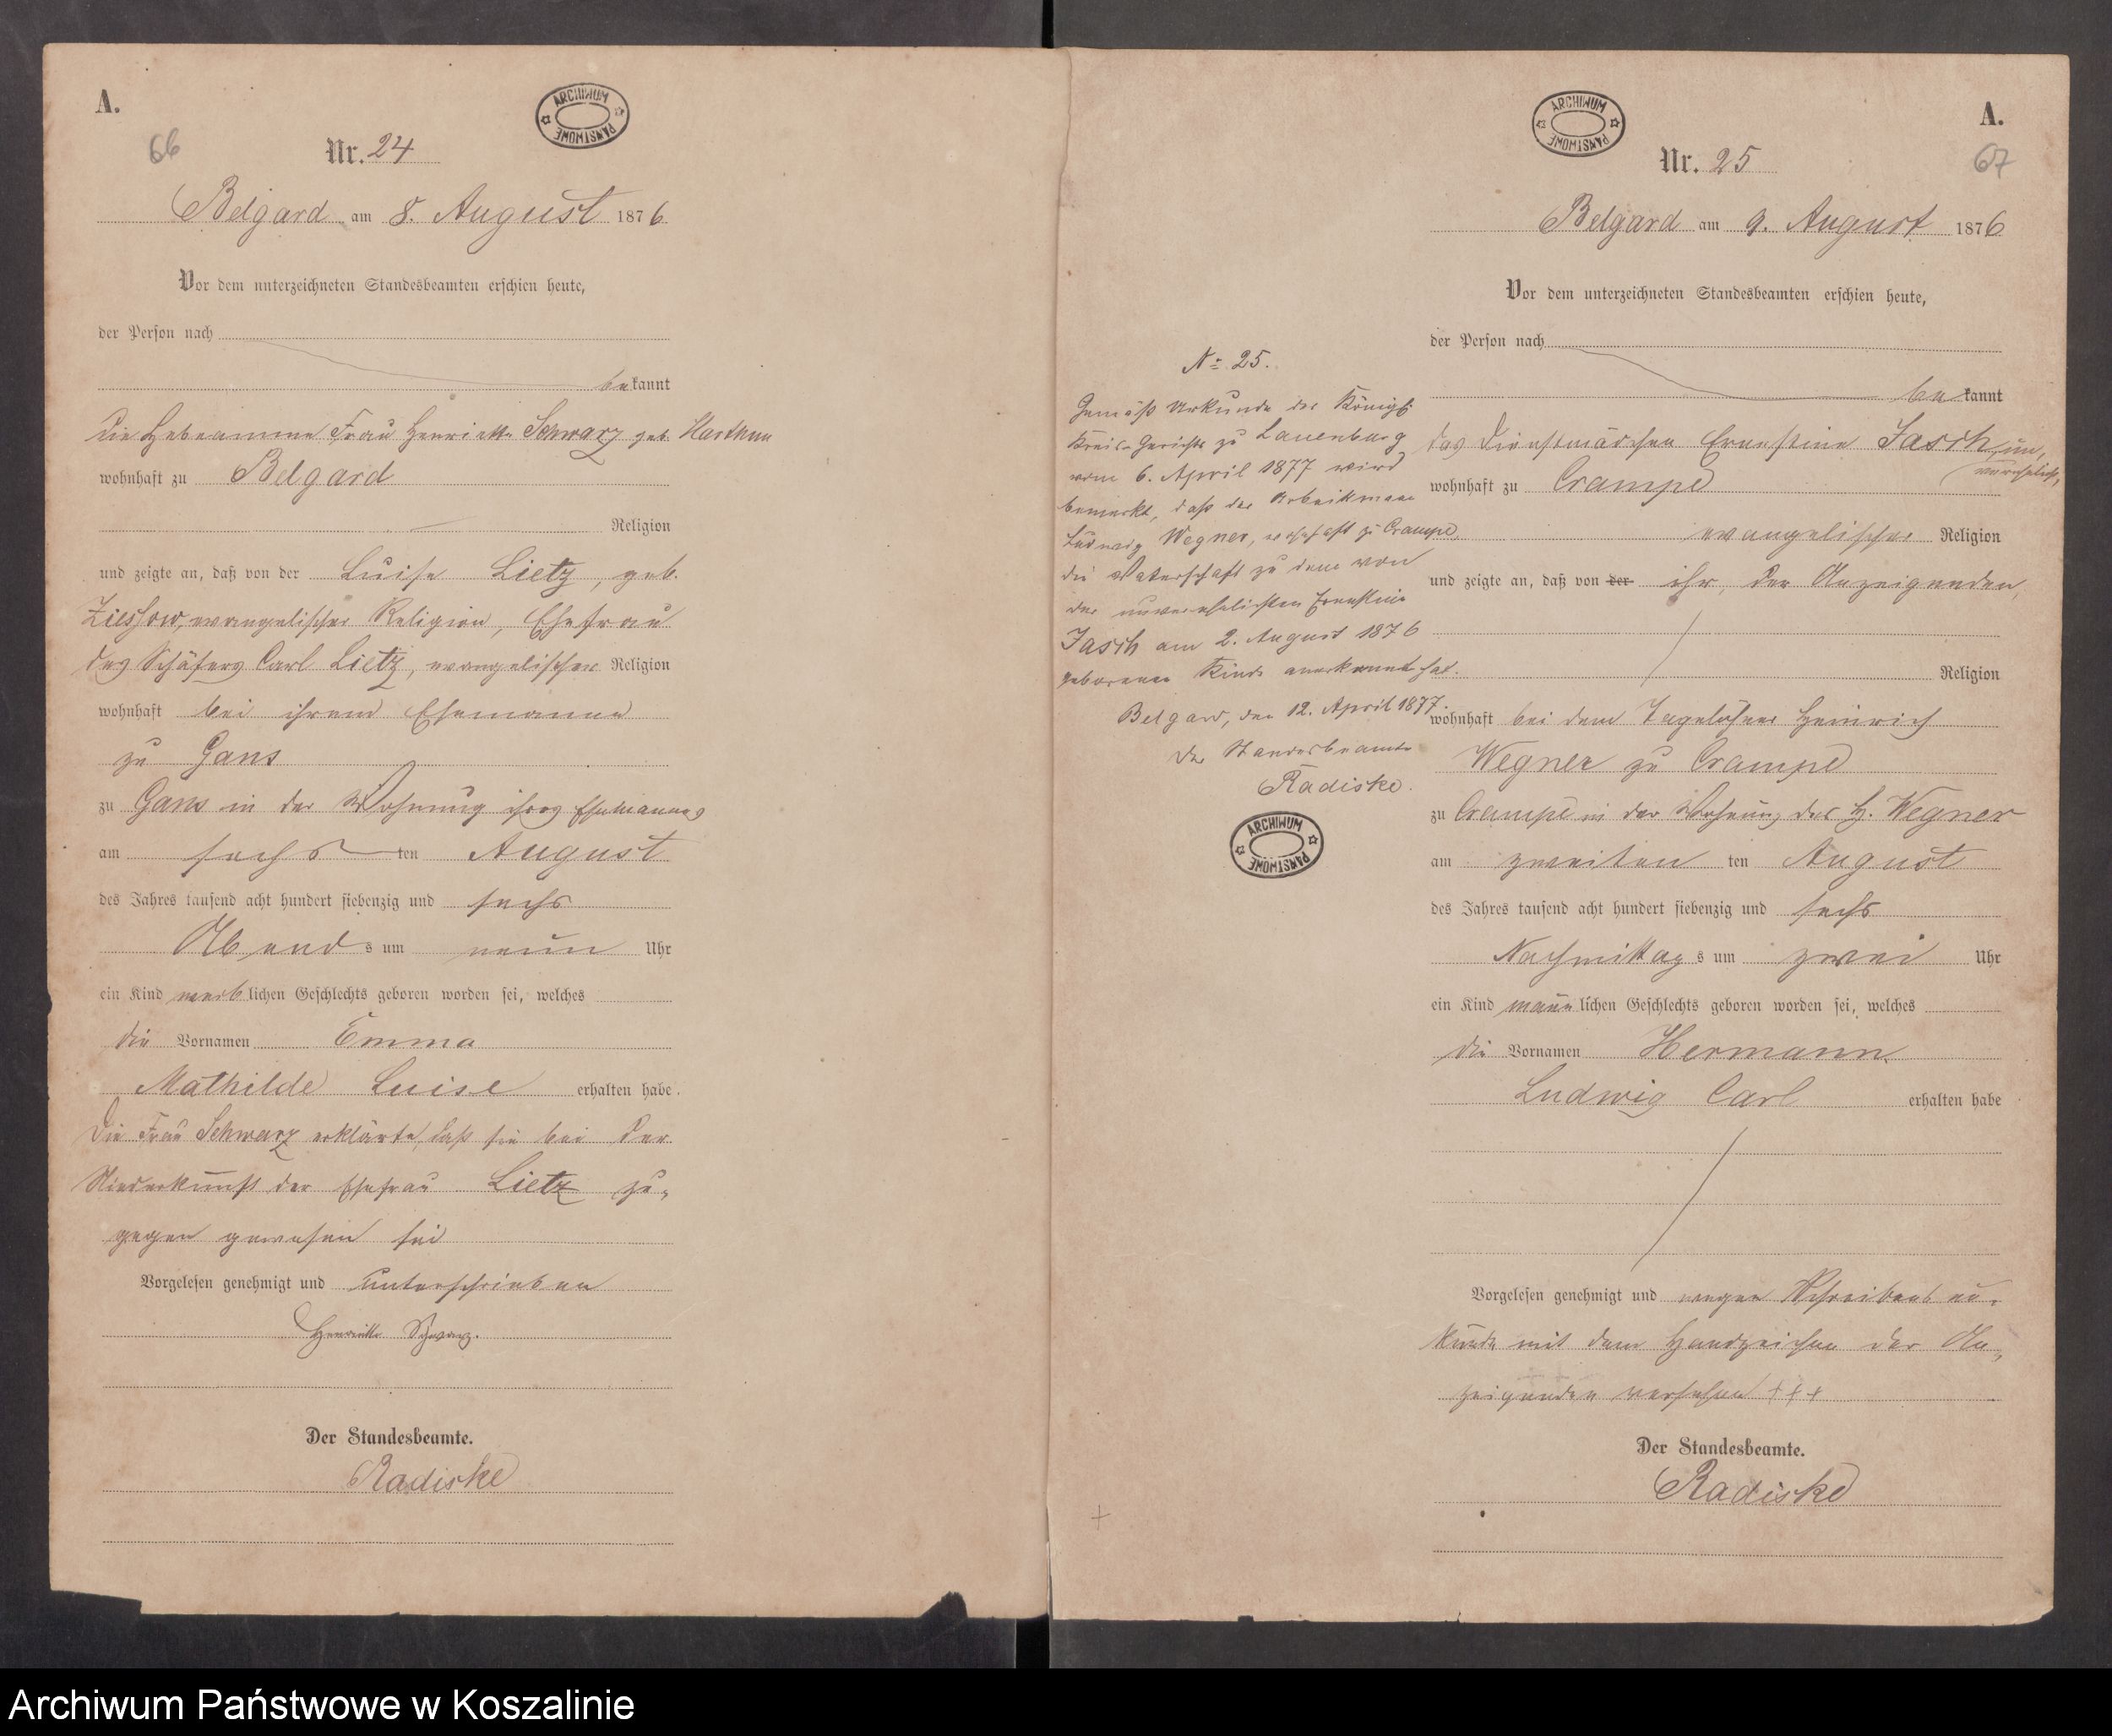 A.
66
ARCHIWUM PAŃSTWOWE
Nr. 24
Belgard am 8. August 1876
Vor dem unterzeichneten Standesbeamten erschien heute,
der Person nach
bekannt
die Hebeamme Frau Henriette Schwarz geb. Harthun
wohnhaft zu Belgard
Religion
und zeigte an, daß von der Luise Lietz, geb.
evangelischer Religion, Ehefrau
des Schäfers Carl Lietz, evangelischer Religion
wohnhaft bei ihrem Ehemanne
zu Gans
zu Gans in der Wohnung ihres Ehemannes
am sechsten August
des Jahres tausend acht hundert siebenzig und sechs
Abends um neun Uhr
ein Kind weiblichen Geschlechts geboren worden sei, welches
die Vornamen Emma
Mathilde Luise erhalten habe.
Die Frau Schwarz erklärte, daß sie bei der
Niederkunft der Ehefrau Lietz zu-
gegen gewesen sei
Vorgelesen genehmigt und unterschrieben
Henriette Schwarz.
Der Standesbeamte.
Radiske
A.
67
ARCHIWUM PAŃSTWOWE
Nr. 25
Belgard am 9. August 1876
Vor dem unterzeichneten Standesbeamten erschien heute,
der Person nach
bekannt
das Dienstmädchen Ernestine Jasch, un-
verehelicht,
wohnhaft zu Crampe
evangelischer Religion
und zeigte an, daß von der ihr, der Anzeigenden,
Religion
wohnhaft bei dem Tagelöhner Heinrich
Wegner zu Crampe
zu Crampe in der Wohnung des H. Wegner
am zweiten ten August
des Jahres tausend acht hundert siebenzig und sechs
Nachmittags um zwei Uhr
ein Kind männlichen Geschlechts geboren worden sei, welches
die Vornamen Hermann
Ludwig Carl erhalten habe
Vorgelesen genehmigt und wegen Schreibens un-
kunde mit dem Handzeichen der An-
zeigenden versehen +++
Der Standesbeamte.
Radiske
No 25.
Gemäß Urkunde des Königl.
Kreis-Gerichts zu Lauenburg
vom 6. April 1877 wird
bemerkt, daß der Arbeitsmann
Ludwig Wegner, wohnhaft zu Crampe,
die Vaterschaft zu dem von
der unverehelichten Ernestine
Jasch am 2. August 1876
geborenen Kinde anerkannt hat.
Belgard, den 12. April 1877.
Der Standesbeamte
Radiske.
ARCHIWUM PAŃSTWOWE
Archiwum Państwowe w Koszalinie